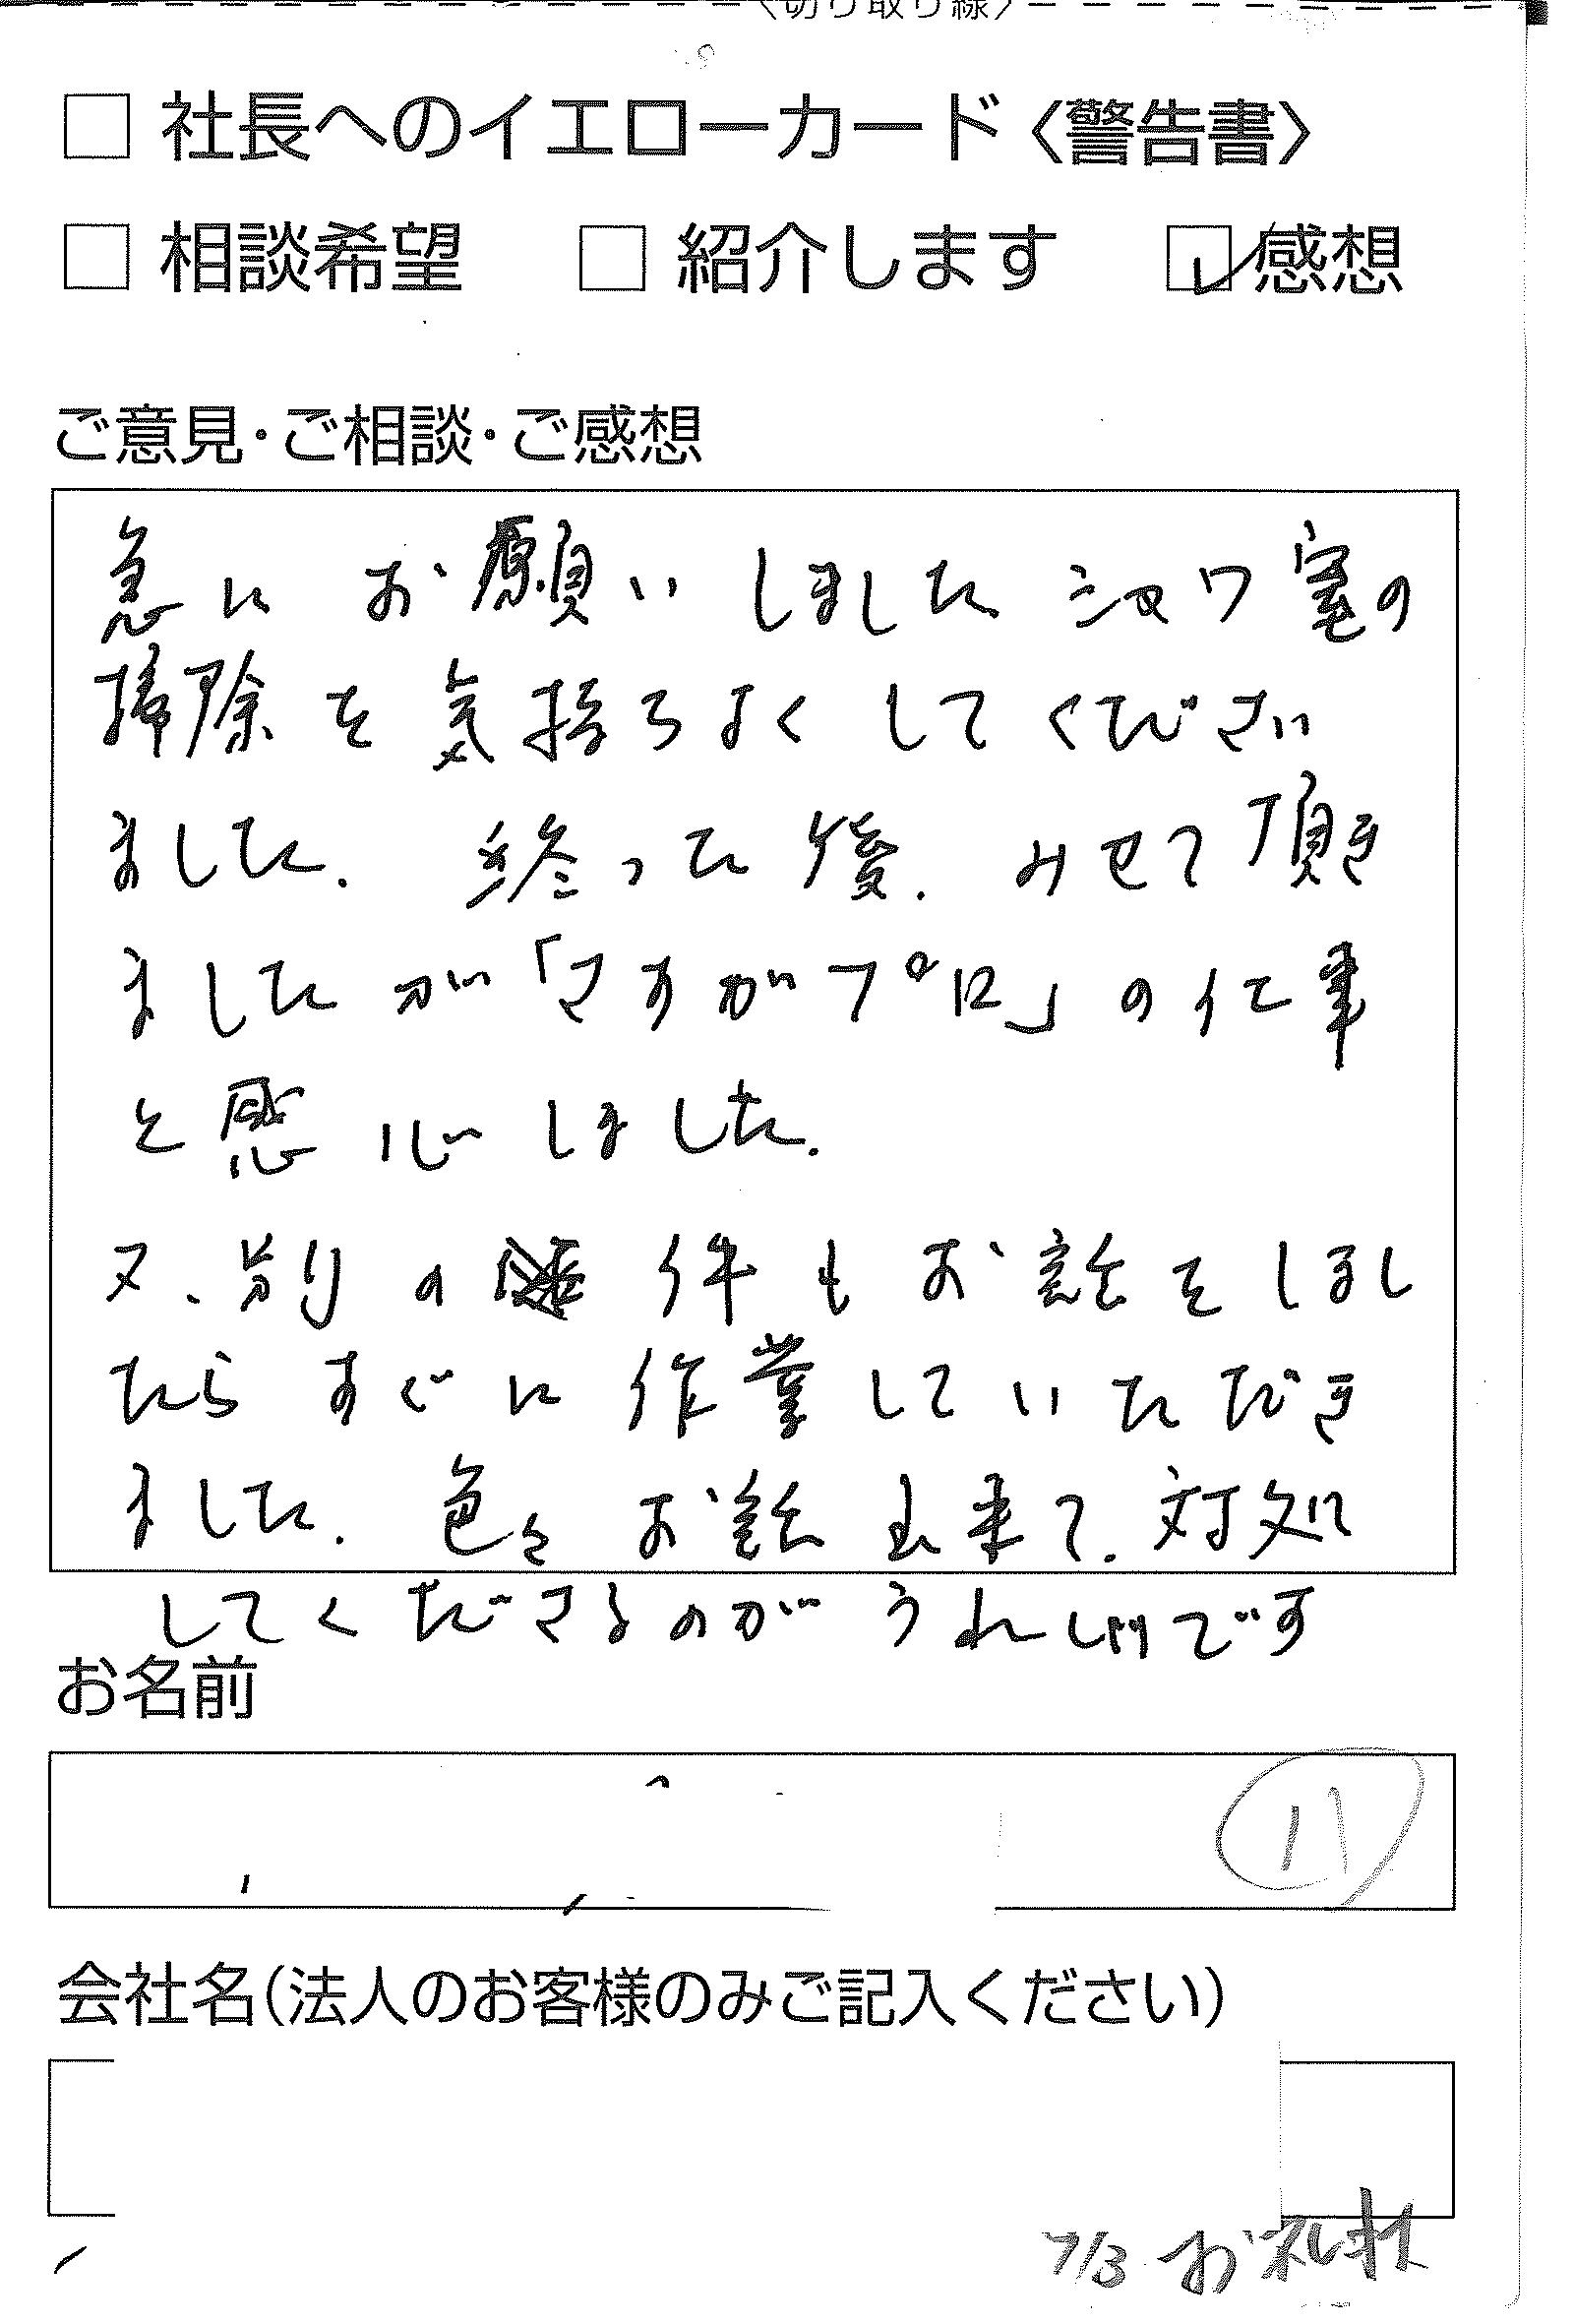 〈切り取り線〉
□ 社長へのイエローカード〈警告書〉
□ 相談希望 □ 紹介します ☑ 感想
ご意見・ご相談・ご感想
急に お願いしました シャワ室の
掃除を気持ちよくしてください
ました. 終った後. みせて頂き
ましたが「さすがプロ」の仕事
と感心しました.
又、別の 件もお話をしまし
たら すぐに作業していただき
ました. 色々お話出来て. 対処
してくださるのが うれしいです
お名前
11
会社名(法人のお客様のみご記入ください)
7/3 お礼状